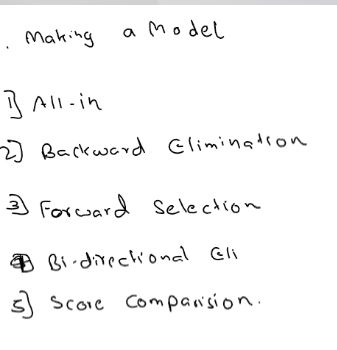 . Making a Model
1] All-in
2] Backward Elimination
3] Forward Selection
4] Bi-directional Eli
5] Score Comparision.